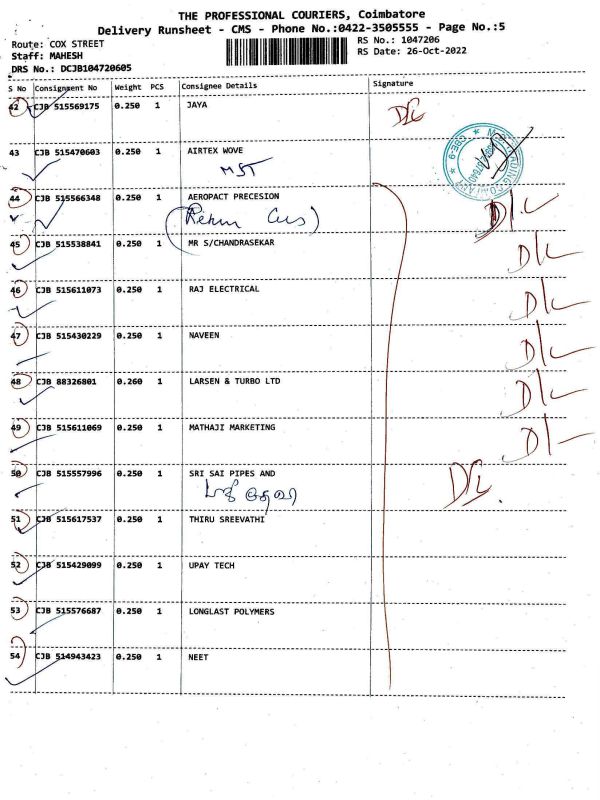 THE PROFESSIONAL COURIERS, Coimbatore
Delivery Runsheet - CMS - Phone No.:0422-3505555 - Page No.:5
Route: COX STREET
RS No.: 1047206
Staff: MAHESH
RS Date: 26-Oct-2022
DRS No.: DCJB104720605
S No Consignment No Weight PCS Consignee Details Signature
42 CJB 515569175 0.250 1 JAYA D/L
43 CJB 515470603 0.250 1 AIRTEX WOVE
44 CJB 515566348 0.250 1 AEROPACT PRECESION D/L
45 CJB 515538841 0.250 1 MR S/CHANDRASEKAR D/L
46 CJB 515611073 0.250 1 RAJ ELECTRICAL D/L
47 CJB 515430229 0.250 1 NAVEEN D/L
48 CJB 88326801 0.260 1 LARSEN & TURBO LTD D/L
49 CJB 515611069 0.250 1 MATHAJI MARKETING D/L
50 CJB 515557996 0.250 1 SRI SAI PIPES AND D/L
51 CJB 515617537 0.250 1 THIRU SREEVATHI
52 CJB 515429099 0.250 1 UPAY TECH
53 CJB 515576687 0.250 1 LONGLAST POLYMERS
54 CJB 514943423 0.250 1 NEET